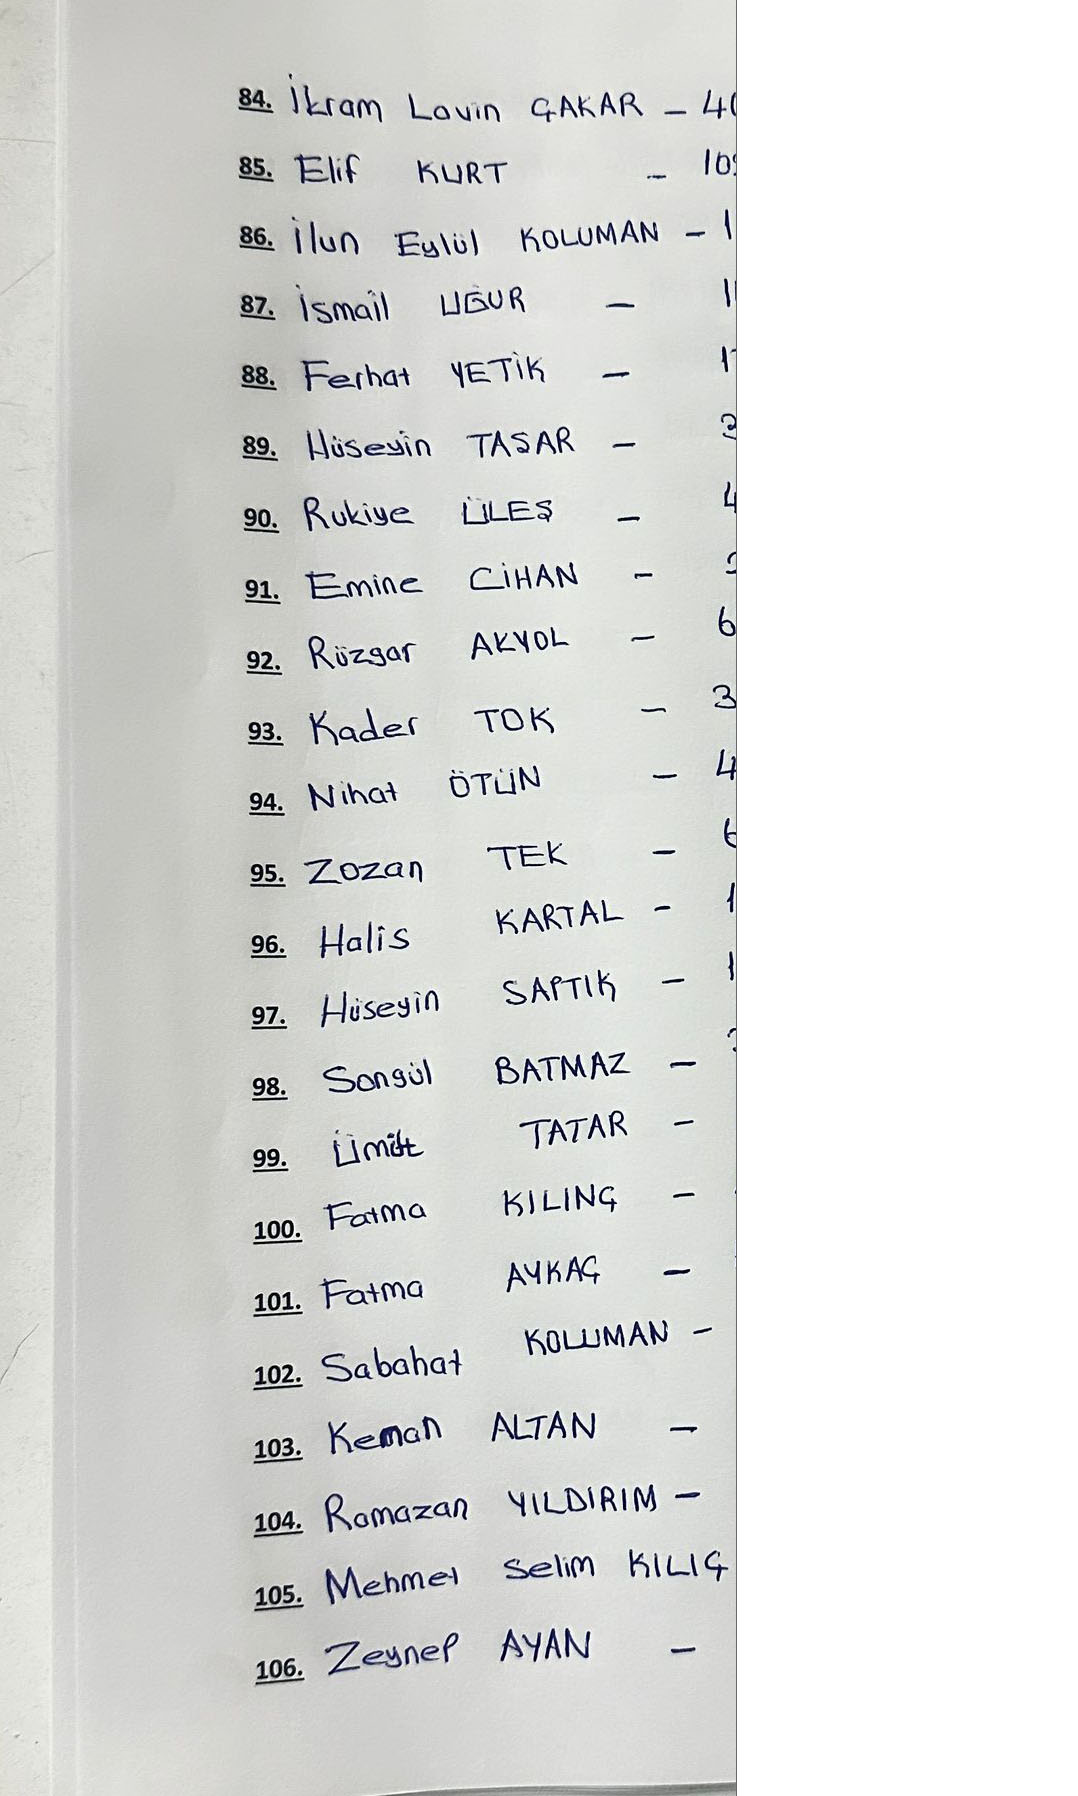 84. İkram Lavin ÇAKAR – 40
85. Elif KURT – 10
86. İlun Eylül KOLUMAN – 1
87. İsmail UĞUR – 1
88. Ferhat YETİK – 1
89. Hüseyin TASAR – 3
90. Rukiye ÜLEŞ – 4
91. Emine CİHAN –
92. Rüzgar AKYOL – 6
93. Kader TOK – 3
94. Nihat ÖTÜN – 4
95. Zozan TEK – 6
96. Halis KARTAL – 1
97. Hüseyin SAPTIK – 1
98. Songül BATMAZ –
99. Ümit TATAR –
100. Fatma KILINÇ –
101. Fatma AYKAÇ –
102. Sabahat KOLUMAN –
103. Kenan ALTAN –
104. Ramazan YILDIRIM –
105. Mehmet Selim KILIÇ
106. Zeynep AYAN –